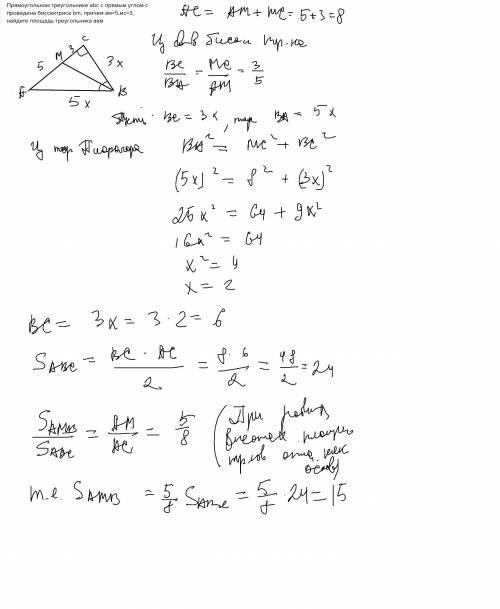 Прямоугольном треугольнике abc с прямым углом с
проведена биссектриса bm, причем am=5,mc=3,
найдите площадь треугольника авм
AC = AM + MC = 5+3=8
C
M 3
5 3x
A B
5x
Из
BC/BA = MC/AM = 3/5
BC = 3x, BA = 5x
Из теор Пифагора BA² = MC² + BC²
(5x)² = 8² + (3x)²
25x² = 64 + 9x²
16x² = 64
x² = 4
x = 2
BC = 3x = 3·2 = 6
S ABC = BC · AC / 2 = 8·6 / 2 = 48/2 = 24
S AMB / S ABC = AM / AC = 5/8 (При равных
высотах площади
как
основ)
т.е. S AMB = 5/8 S = 5/8 · 24 = 15